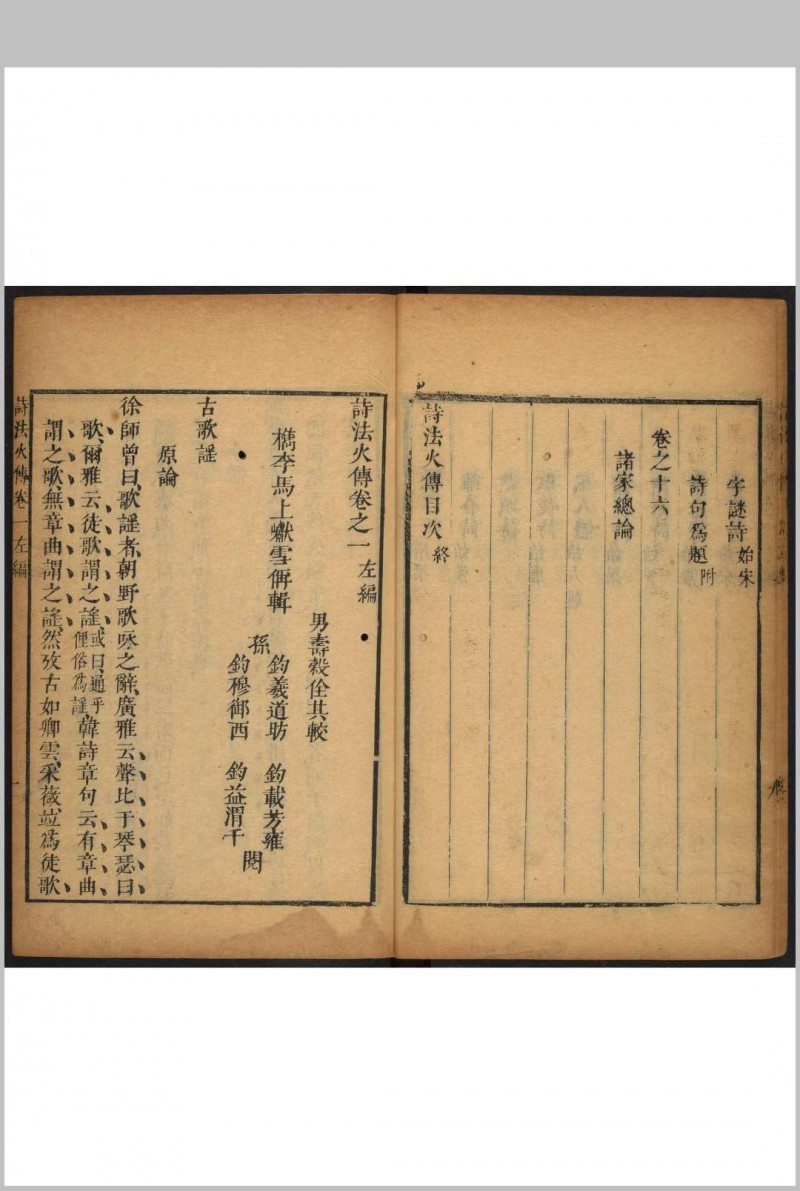 字謎詩始宋
詩句為題附
卷之十六
諸家總論
詩法火傳目次終
詩法火傳卷之一 左編
檇李馬上巘雪俌輯
男壽穀佺其較
孫 鈞羲道昉 鈞載芳雍
鈞穆御西 鈞益渭千 閱
古歌謠
原論
徐師曾曰、歌謠者、朝野歌咏之辭、廣雅云聲比于琴瑟曰
歌、爾雅云徒歌謂之謠、或曰、通乎俚俗為謠、韓詩章句云有章曲
謂之歌、無章曲謂之謠、然攷古如卿雲、采薇、竝為徒歌、
詩法火傳卷一左編
一